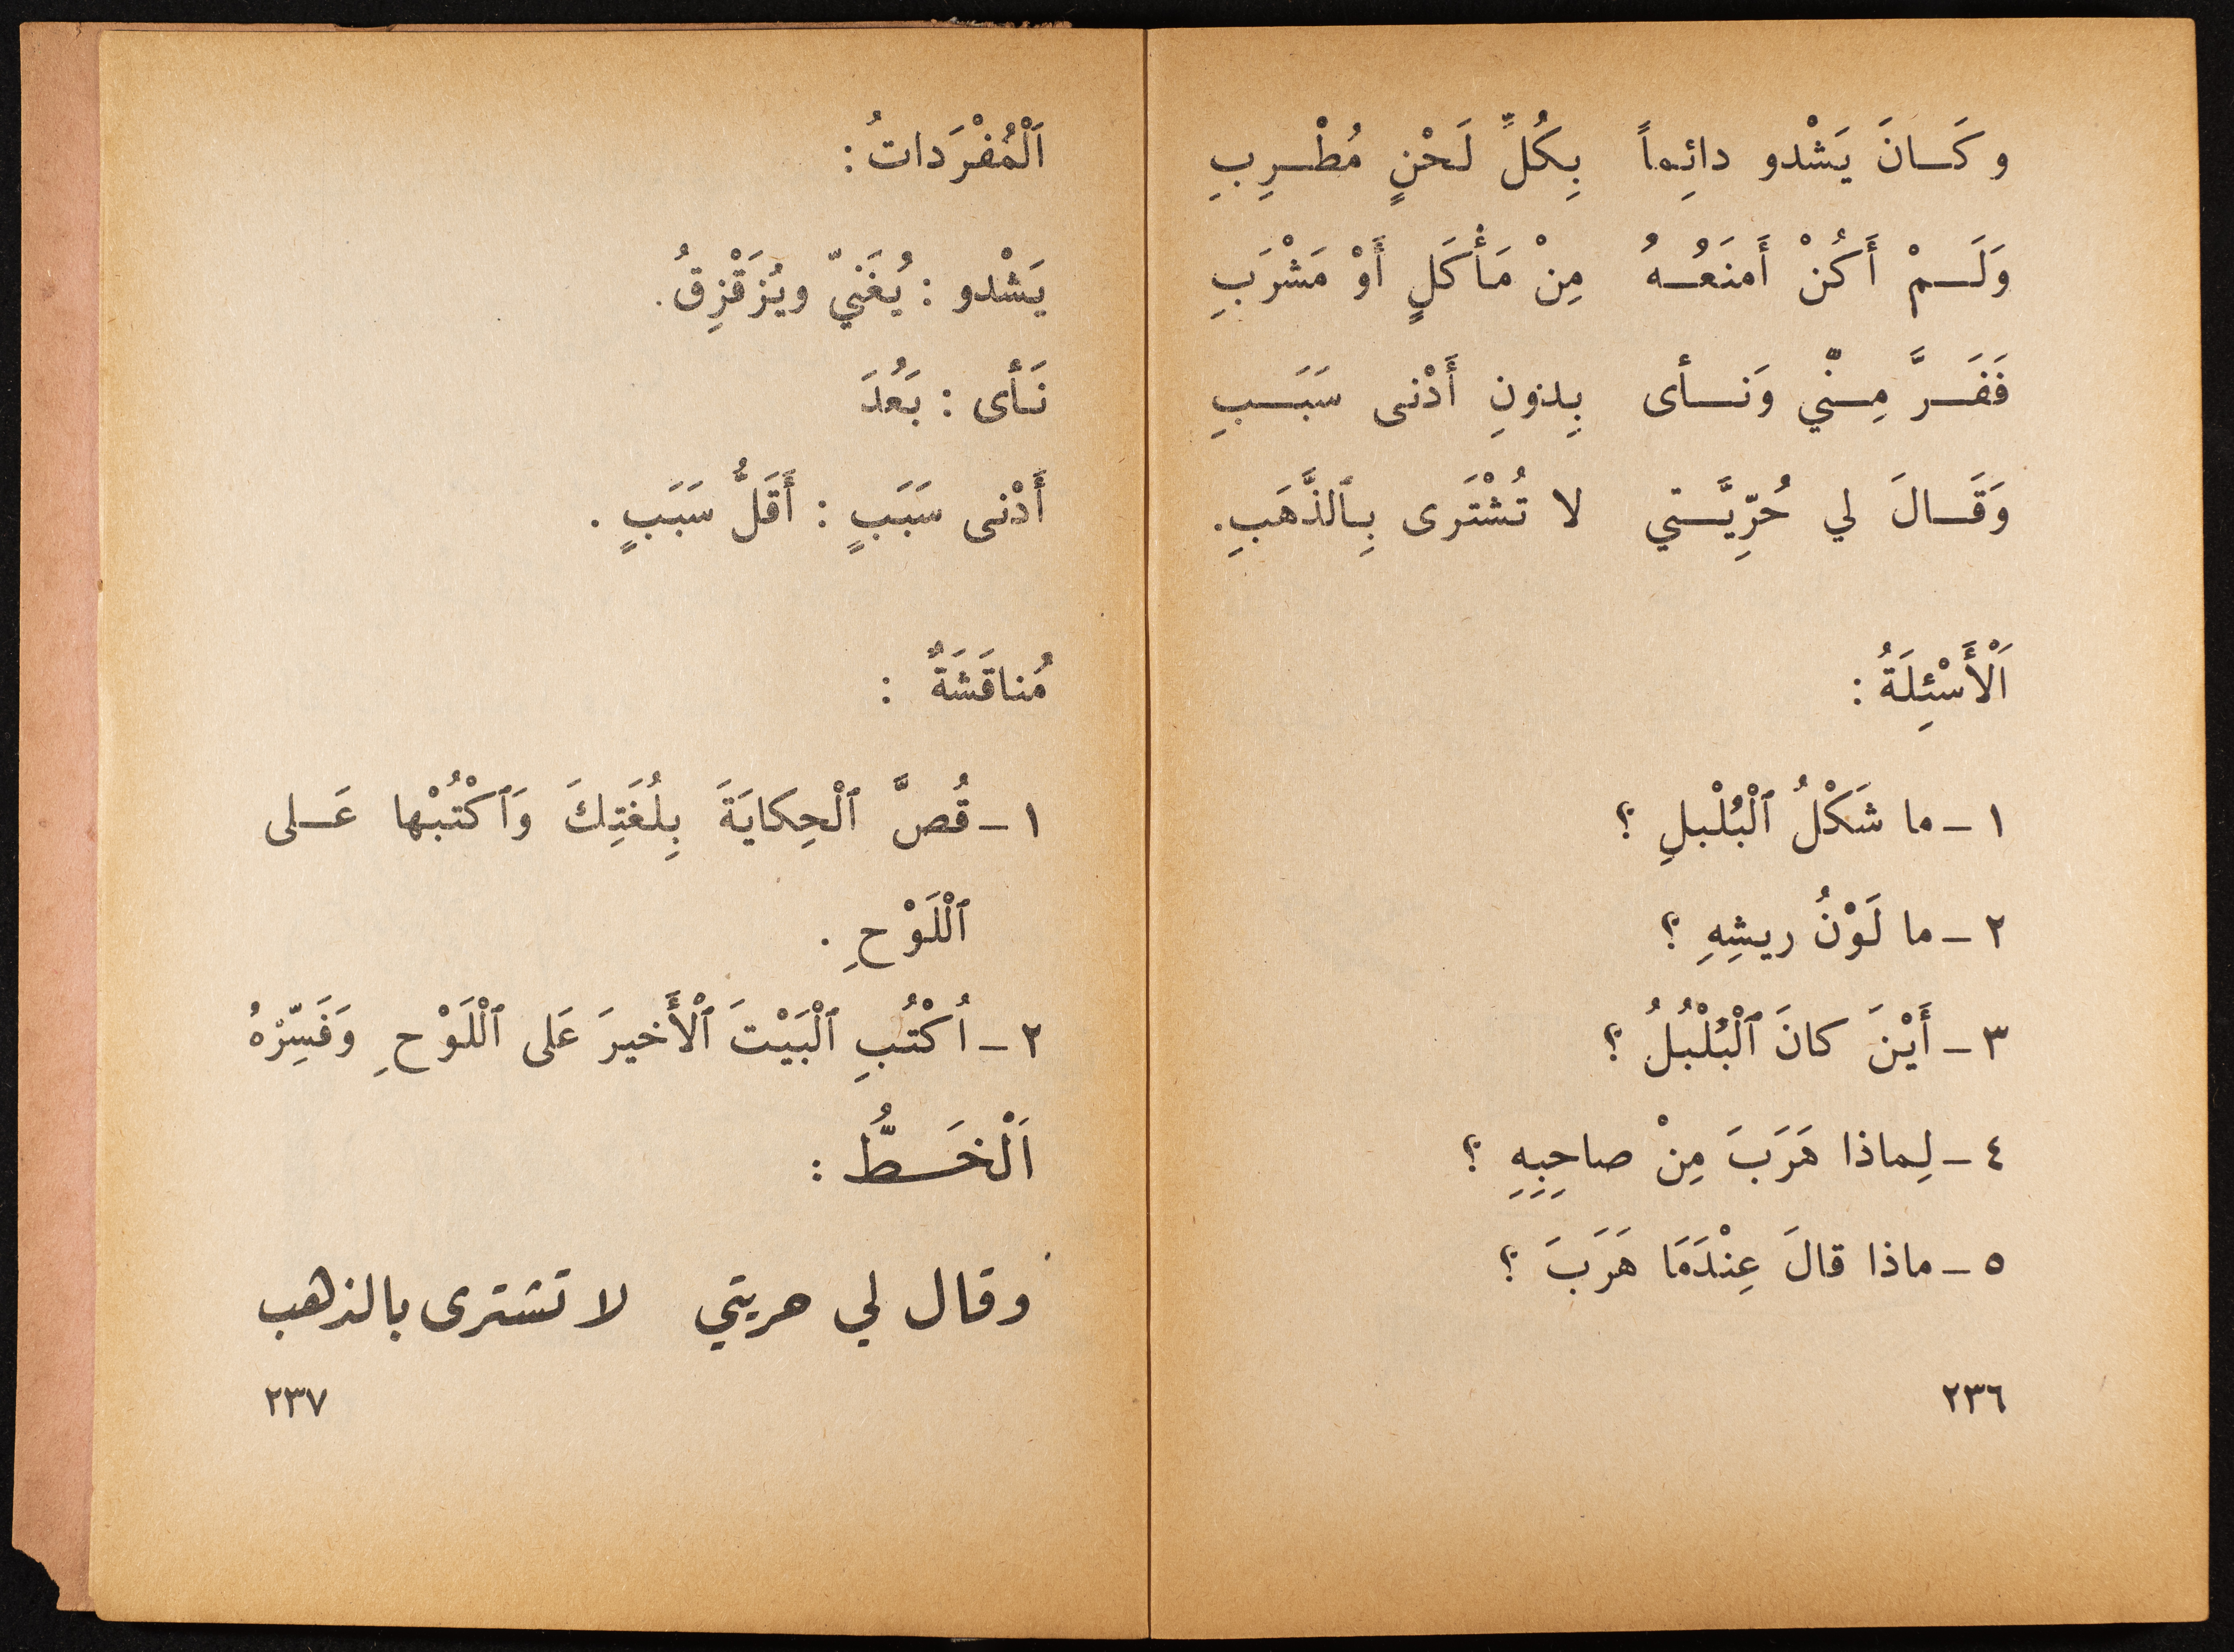 وكَانَ يَشْدو دائِماً بِكُلِّ لَحْنٍ مُطْرِبِ
وَلَمْ أَكُنْ أَمنَعُهُ مِنْ مَأْكَلٍ أَوْ مَشْرَبِ
فَفَرَّ مِنّْي وَنأى بِدونِ أَدْنى سَبَبِ
وَقَالَ لي حُرِّيَّتي لا تُشْتَرى بِٱلذَّهَبِ.
اَلْأَسْئِلَةُ :
١ - ما شَكْلُ ٱلْبُلْبلِ ؟
٢ - ما لَوْنُ ريشِهِ ؟
٣ - أَيْنَ كانَ ٱلْبُلْبُلُ ؟
٤ - لِماذا هَرَبَ مِنْ صاحِبِهِ ؟
٥ - ماذا قالَ عِنْدَمَا هَرَبَ ؟
٢٣٦
اَلْمُفْرَداتُ :
يَشْدو : يُغَنيّ ويُزَقْزِقُ .
نَأى : بَعُدَ
أَدْنى سَبَبٍ : أَقَلُّ سَبَبٍ .
مُناقَشَةٌ :
١ - قُصَّ ٱلْحِكايَةَ بِلُغَتِكَ وَٱكْتُبْها عَلى
ٱلْلَوْحِ .
٢ - اُكْتُبِ ٱلْبَيْتَ ٱلْأَخيرَ عَلى ٱلْلَوْحِ وَفَسِّرْهُ
اَلْخَطُّ :
وقال لي حريتي لا تشترى بالذهب
٢٣٧